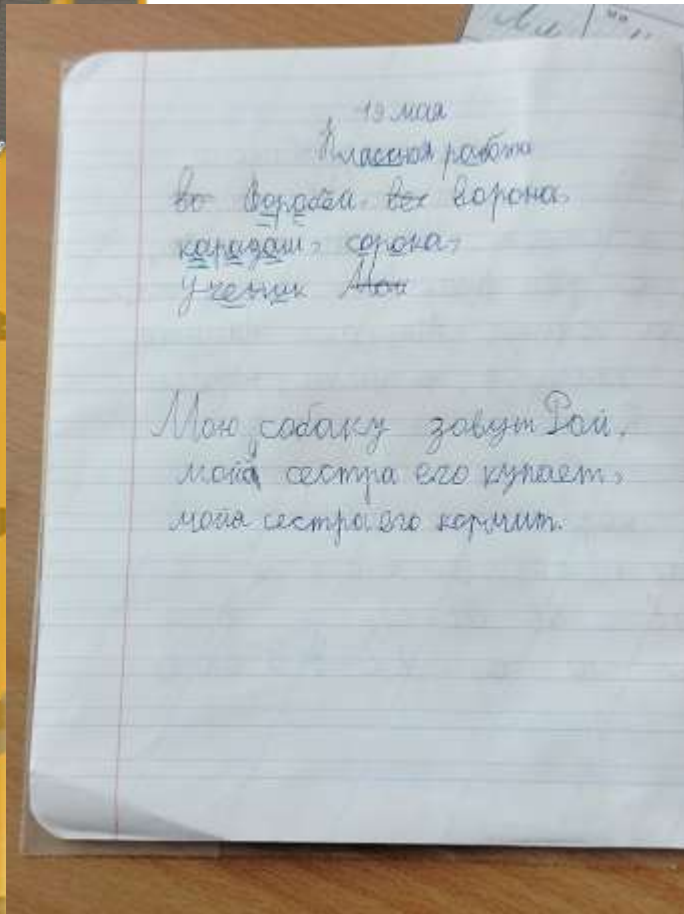 19 мая
Классная работа
во воробей, вор ворона,
карадаш, сорока,
ученик Мою
Мою собаку зовут Рой,
мойа сестра его купает,
мойа сестра его кормит.